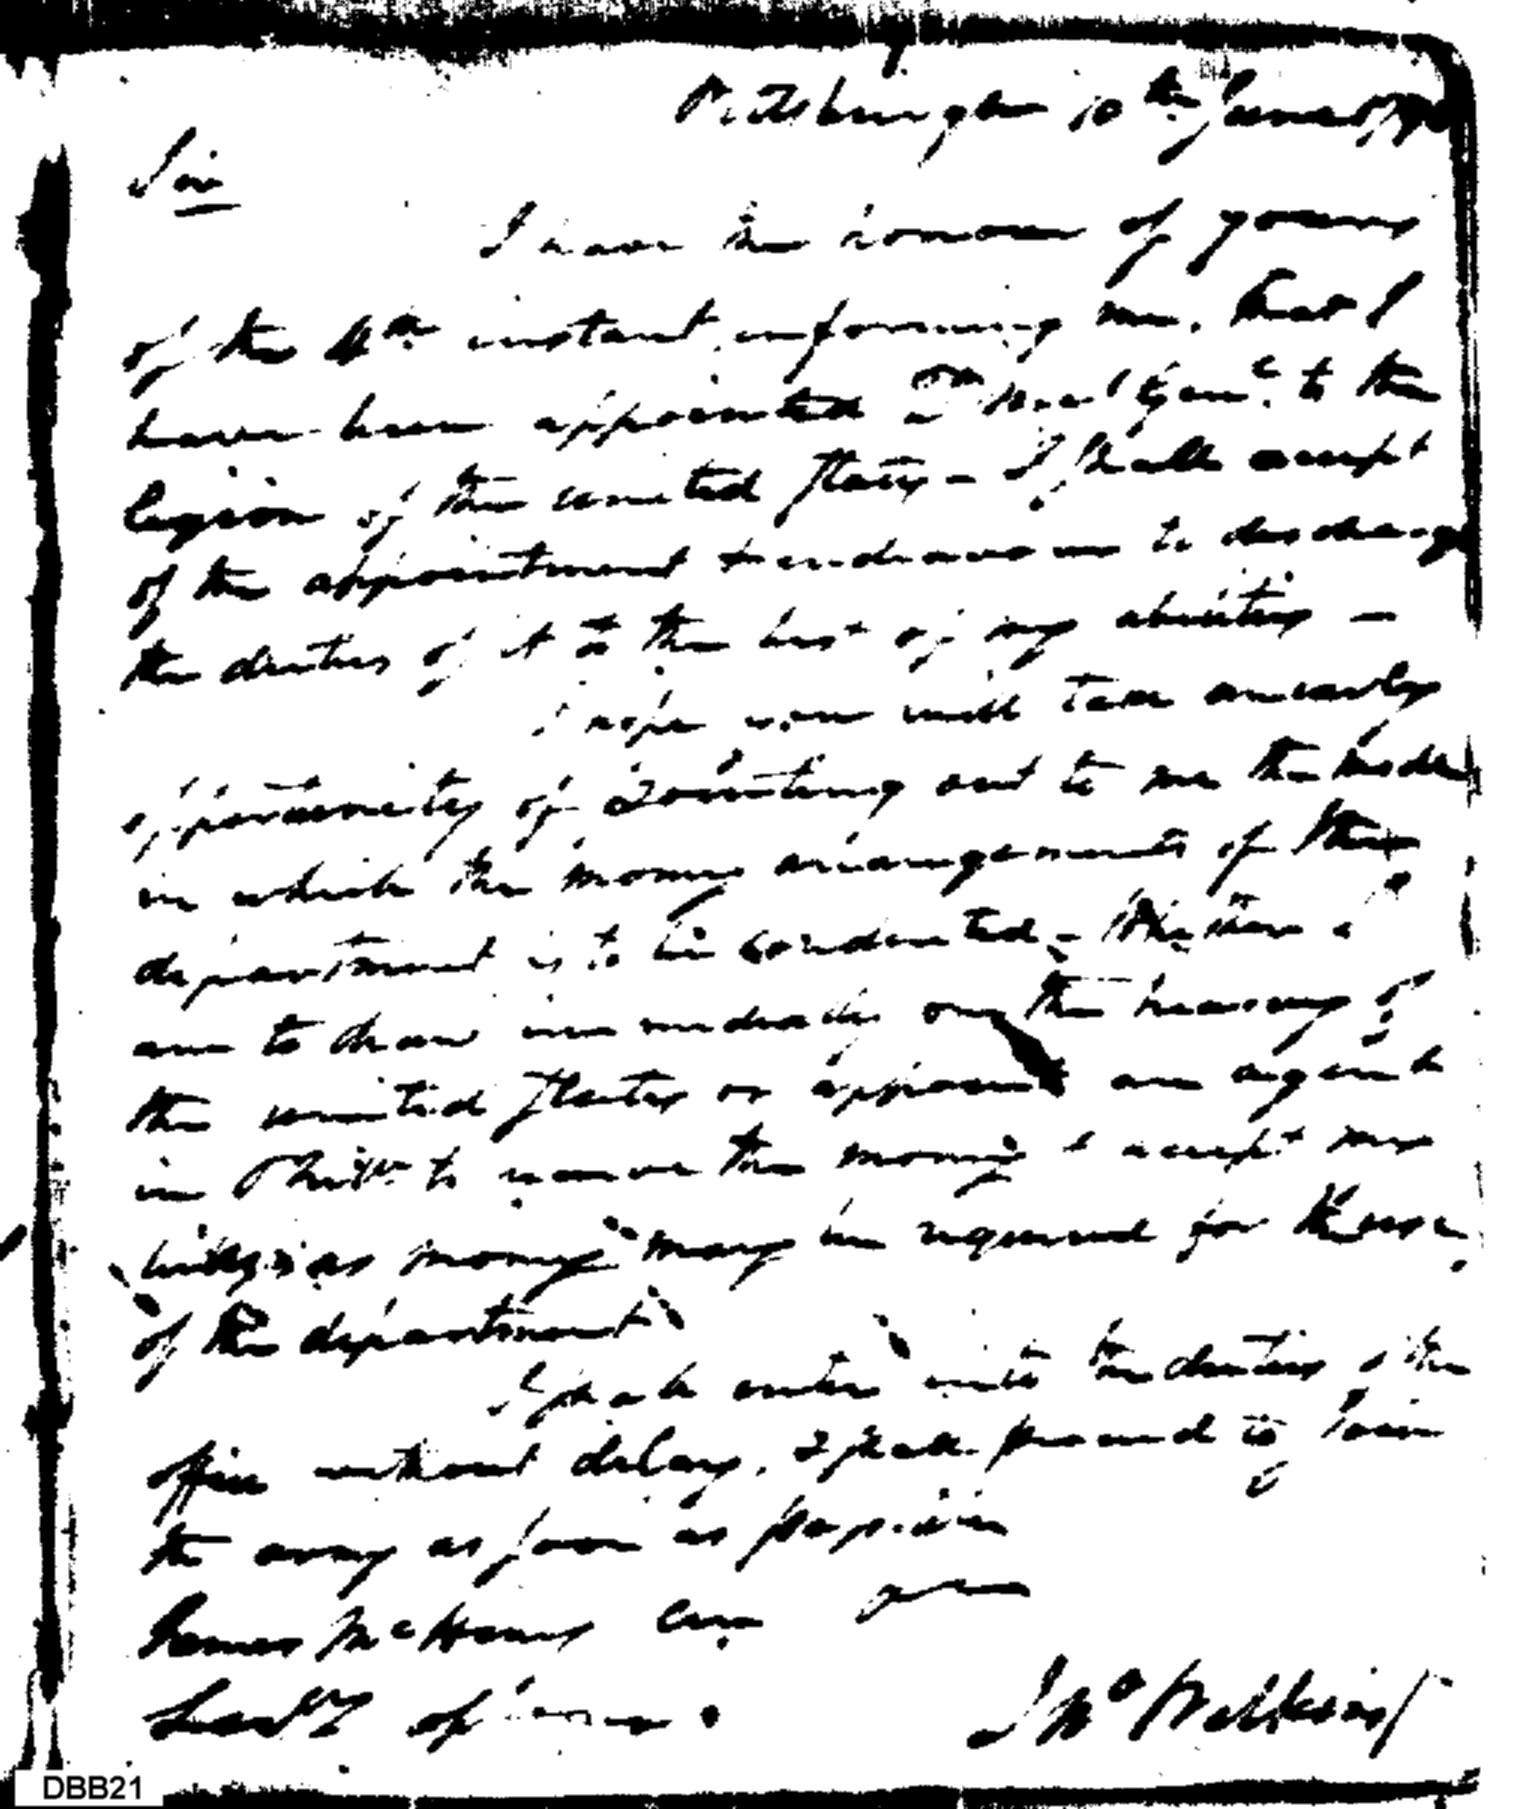 Pittsburgh 10th June 179
Sir
I have the honour of yours
of the 4th instant informing me, that I
have been appointed Qr Mr Genl. to the
legion of the united States - I shall accept
of the appointment & endeavour to discharge
the duties of it to the best of my abilities -
I hope you will take an early
opportunity of pointing out to me the mode
in which the money arrangements of the
department is to be conducted - Whether I
am to draw immediately on the treasury of
the united States or appoint an agent
in Philda to receive the money & accept my
bills, as money may be required for the use
of the department
I shall enter into the duties of the
office without delay, I shall proceed to join
the army as soon as possible
James McHenry Esqr
Secry of war.
Jno Wilkins Jr
DBB21